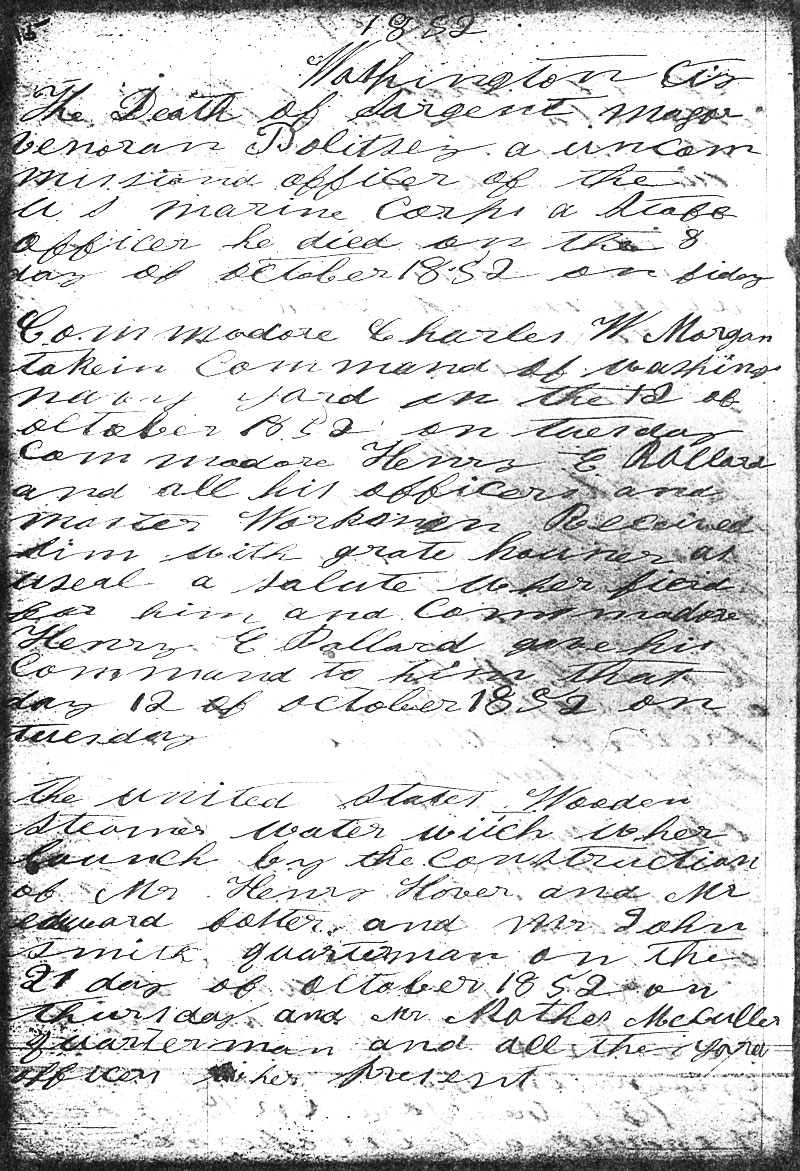 1852
Washington City
The Death of Sargent Major
venoran Bolitsez a uncom
missiond officer of the
U S marine Corps a Staff
officer he died on the 8
day of october 1852 on fiday
Commodore Charles W Morgan
takein Command of washing
navy yard on the 12 of
october 1852 on tuesday
Commodore Henry E Ballard
and all his officers and
master Workmen Received
him with grate houner as
useal a salute wher fierd
for him and Commodore
Henry E Ballard gave his
Command to him that
day 12 of october 1852 on
tuesday
the united States Wooden
steamer water wiich wher
launch by the construction
of Mr Henry Hover and Mr
edward and Mr John
Smith quarterman on the
21 day of october 1852 on
thursday and Mr Mother McCuller
quarterman and all the yord
officers wher present